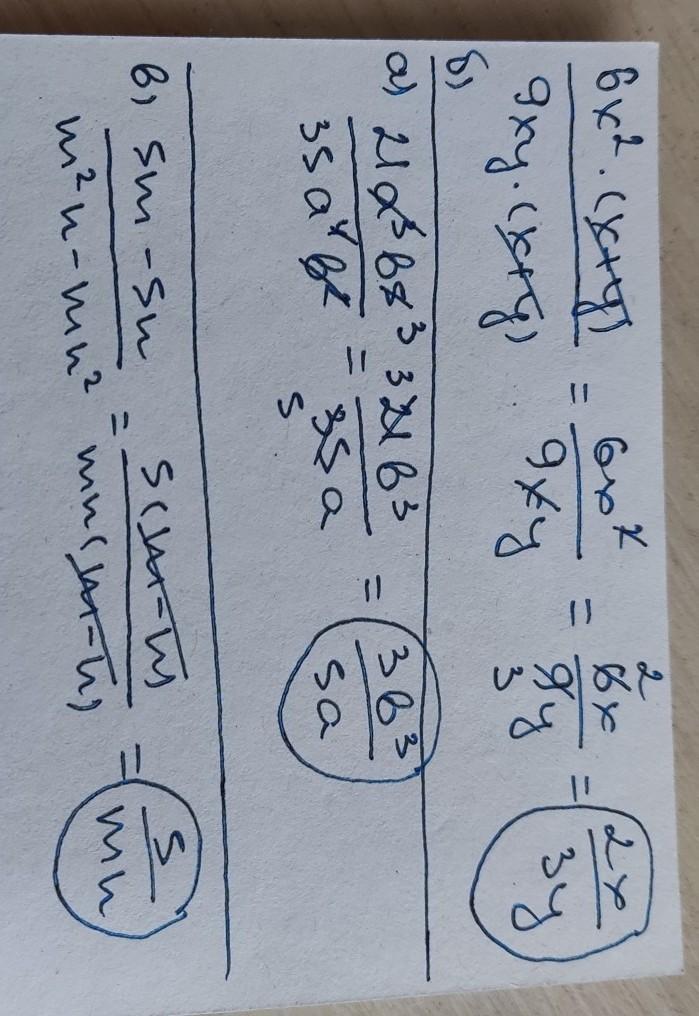 6x² · (x+y) / 9xy · (x+y) = 6x² / 9xy = 6x / 9y = 2x / 3y
2 3
б)
а) 21a³b⁴ / 35a⁴b = 21b³ / 35a = 3b³ / 5a
3 3 5
в) 5m - 5n / m²n - mn² = 5(m-n) / mn(m-n) = 5 / mn